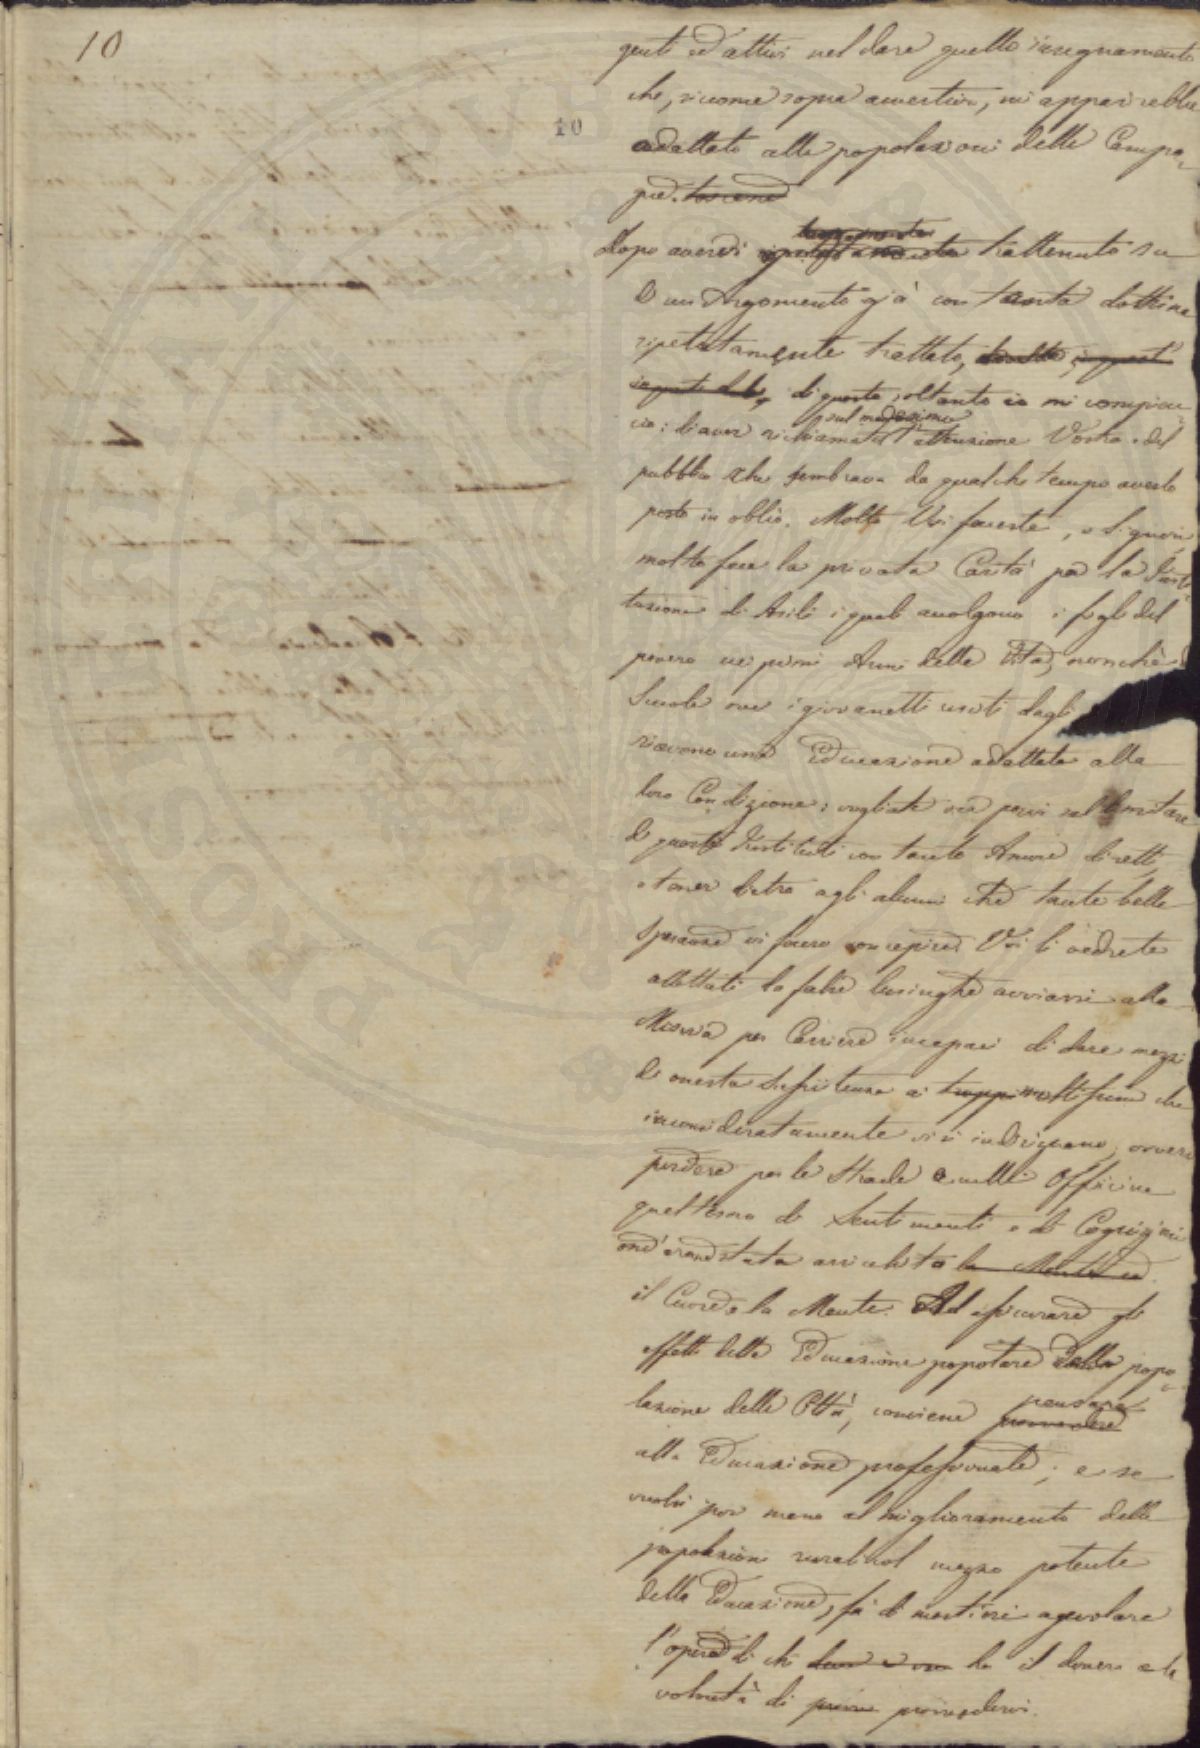 10
10
genti ed attivi nel dare quello insegnamento
che, siccome sopra avvertiva, mi apparirebbe
adattato alle popolazioni delle Campa-
gne. toscane
lungamente
Dopo avervi trattenuto su
d'un Argomento già con tanta dottrina
ripetutamente trattato,
di questo soltanto io mi compiac-
sul medesimo
cio: di aver richiamata l'attenzione Vostra e del
pubblico che sembrava da qualche tempo averlo
posto in oblio. Molto Voi faceste, o Signori,
molto fece la privata Carità per la Isti-
tuzione di Asili i quali accolgono i figli del
povero ne' primi Anni della Vita, nonchè
Scuole ove i giovanetti usciti dagli
ricevono una Educazione adattata alla
loro Condizione; vogliate ora porvi sul limitare
di questi Instituti con tanto Amore diretti,
e tener dietro agli alunni che tante belle
speranze vi fecero concepire. Voi li vedrete
allettati da false lusinghe avviarsi alla
Miseria per Carriere incapaci di dare mezzi
di onesta sussistenza ai troppi molti che
inconsideratamente vi si indirizzano, ovvero
perdere per le Strade e nelle Officine
quel tesoro di Sentimenti e di Cognizioni
ond'era stata arricchita la Mente ed
il Cuore e la Mente. Ad assicurare gli
effetti della Educazione popolare della popo-
lazione delle Città, conviene pensare
provvedere
alla Educazione professionale; e se
vuolsi por mano al miglioramento delle
popolazioni rurali col mezzo potente
della Educazione, fà di mestieri agevolare
l'opera di chi ha il dovere e la
volontà di provvedervi.